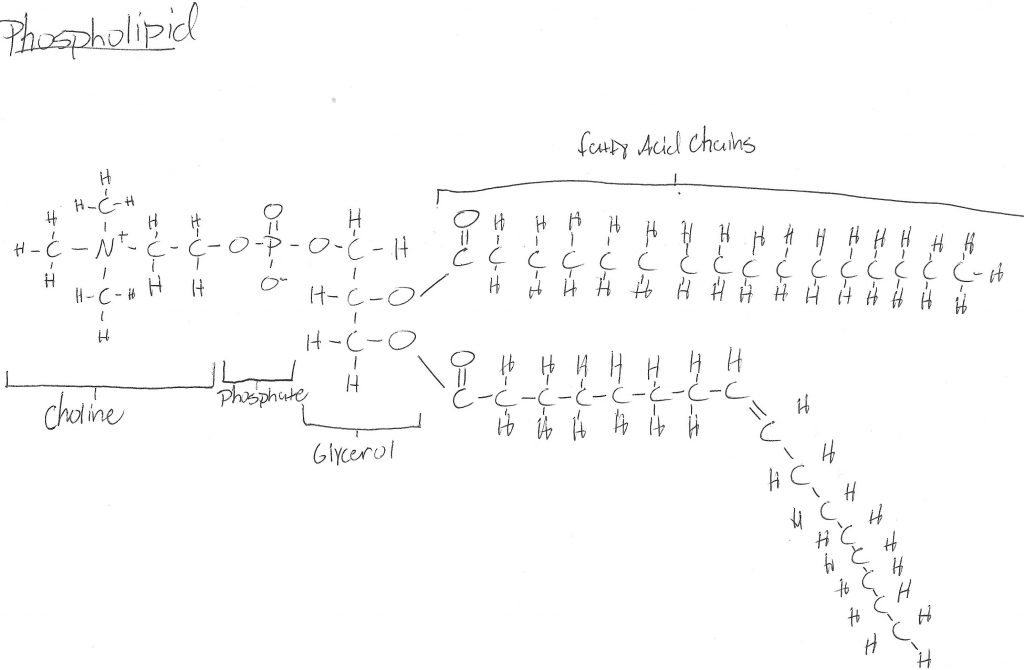 Phospholipid
Fatty Acid Chains
H
H-C-H
H H H O H O H H H H H H H H H H H H H H H
H-C-N+-C-C-O-P-O-C-H
C C C C C C C C C C C C C C C C-H
H H H O-
H-C-H
H-C-O
H H H H H H H H H H H H H H H
H
H-C-O
O H H H H H H H
H
C-C-C-C-C-C-C-C
H H H H H H
Choline
Phosphate
Glycerol
C H
H C H
C H
H C H
H C H
H C H
H C H
H C H
H C H
H